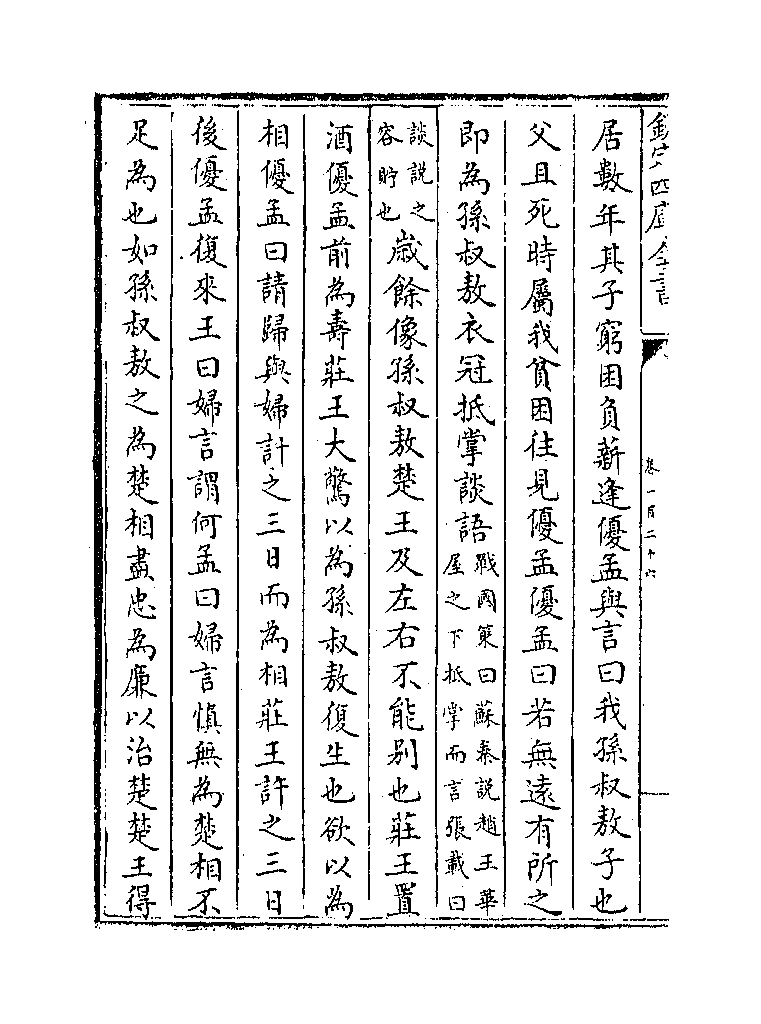 欽定四庫全書
卷一百二十六
居數年其子窮困負薪逢優孟與言曰我孫叔敖子也
父且死時屬我貧困往見優孟優孟曰若無遠有所之
即為孫叔敖衣冠抵掌談語戰國策曰蘇秦説趙王華屋之下抵掌而言張載曰
談説之容貯也歲餘像孫叔敖楚王及左右不能别也莊王置
酒優孟前為壽莊王大驚以為孫叔敖復生也欲以為
相優孟曰請歸與婦計之三日而為相莊王許之三日
後優孟復來王曰婦言謂何孟曰婦言慎無為楚相不
足為也如孫叔敖之為楚相盡忠為廉以治楚楚王得